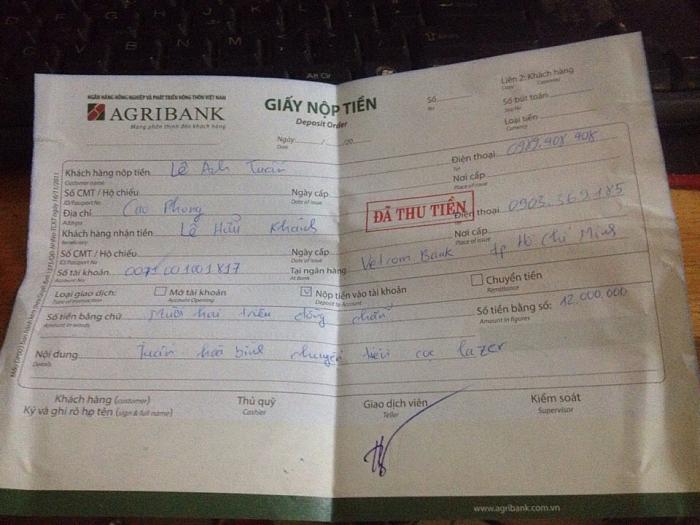 NGÂN HÀNG NÔNG NGHIỆP VÀ PHÁT TRIỂN NÔNG THÔN VIỆT NAM
AGRIBANK
Mang phồn thịnh đến khách hàng
GIẤY NỘP TIỀN
Deposit Order
Ngày / /20
Date
Liên 2: Khách hàng
Copy Customer
Số
No
Số bút toán
Seq No
Loại tiền
Currency
Khách hàng nộp tiền Lê Anh Tuấn
Customer name
Điện thoại 0989.908 908
Tel
Số CMT / Hộ chiếu
ID/Passport No
Ngày cấp
Date of issue
Nơi cấp
Place of issue
Địa chỉ Cao Phong
Address
ĐÃ THU TIỀN
Khách hàng nhận tiền Lê Hữu Khánh
Beneficiary
Điện thoại 0903.369.185
Số CMT / Hộ chiếu
ID/Passport No
Ngày cấp
Date of issue
Nơi cấp
Place of issue
Số tài khoản 0071001001817
Account No
Tại ngân hàng Vetcom Bank tp Hồ Chí Minh
At Bank
Loại giao dịch:
Type of transaction
Mở tài khoản
Account Opening
Nộp tiền vào tài khoản
Deposit to Account
Chuyển tiền
Remittance
Số tiền bằng chữ Mười hai triệu đồng chẵn
Amount in words
Số tiền bằng số: 12.000.000
Amount in figures
Nội dung Tuấn hoà bình chuyển tiền cọc lazer
Details
Khách hàng (customer)
Ký và ghi rõ họ tên (sign & full name)
Thủ quỹ
Cashier
Giao dịch viên
Teller
Kiểm soát
Supervisor
www.agribank.com.vn